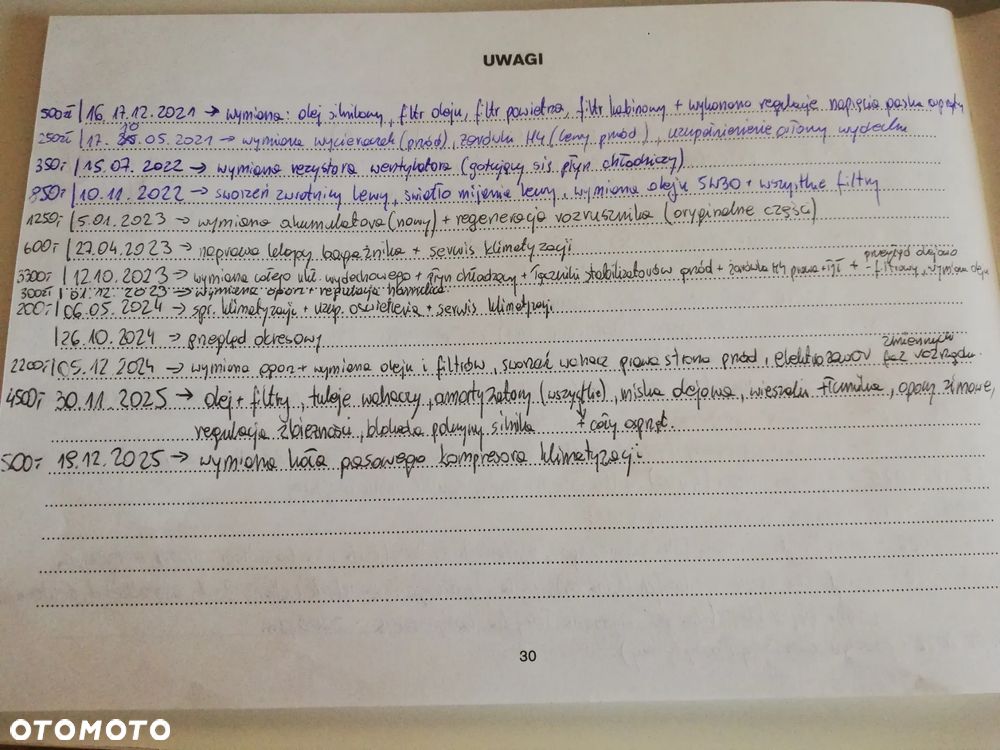 UWAGI
500zł 16.17.12.2021 → wymiana: olej silnikowy, filtr oleju, filtr powietrza, filtr kabinowy + wykonano regulację napięcia paska
250zł 17. 10 .05.2021 → wymiana wycieraczek (przód), żarówka H4 (lewy przód), uzupełnienie osłony wydechu
350,- 15.07.2022 → wymiana rezystora wentylatora (gotujący się płyn chłodniczy)
850,- 10.11.2022 → sworzeń zwrotnicy lewy, światło mijania lewy, wymiana oleju 5W30 + wszystkie filtry
1250,- 5.01.2023 → wymiana akumulatora (nowy) + regeneracja rozrusznika (oryginalne części)
600,- 27.04.2023 → naprawa klapy bagażnika + serwis klimatyzacji
3300,- 12.10.2023 → wymiana całego ukł. wydechowego + płyn chłodzący + łączniki stabilizatorów przód + żarówka H4 prawa + + przegląd olejowo - filtrowy, wymiana oleju
300zł 01.12.2023 → wymiana opon + regulacja hamulca
200,- 06.05.2024 → spr. klimatyzacji + uzup. oświetlenia + serwis klimatyzacji
26.10.2024 → przegląd okresowy
2200,- 05.12.2024 → wymiana opon + wymiana oleju i filtrów, sworzeń wahacz prawa strona przód, elektrozawór zmiennych faz rozrządu.
4500,- 30.11.2025 → olej + filtry, tuleje wahaczy, amortyzatory (wszystkie), miska olejowa, wieszaki tłumika, opony zimowe,
regulacja zbieżności, blokada pokrywy silnika + cały osprzęt.
500,- 19.12.2025 → wymiana koła pasowego kompresora klimatyzacji
30
OTOMOTO